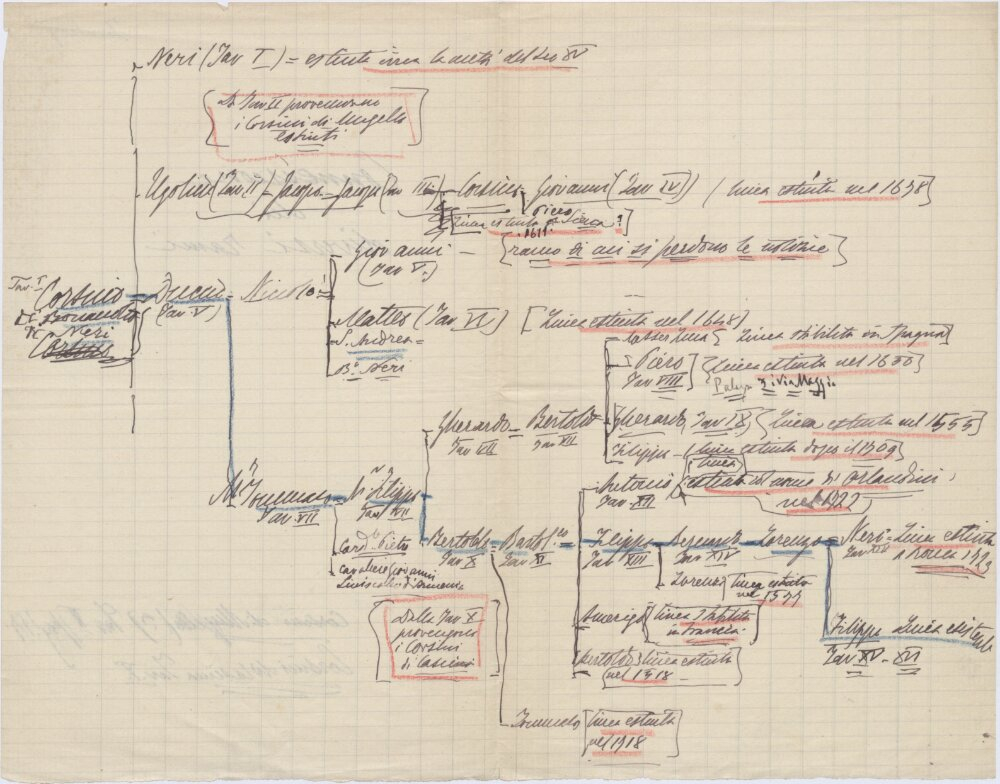 Neri (Tav I) = estinta circa la metà del sec XV
[Da Tav II provennero
i Corsini di Mugello
estinti]
Ugolino (Tav II) - Jacopo - Jacopo (Tav III) - Corsino - Giovanni (Tav IV) [linea estinta nel 1658]
Piero
[linea estinta
1611
Giovanni - [ramo di cui si perdono le notizie]
(Tav V)
Tav. I
Corsino = Duccio = Niccolò =
di Bonaccorso (Tav V)
di Neri
Corsino
Matteo (Tav VI) [Linea estinta nel 1648]
S. Andrea =
B. Neri
[linea stabilita in Spagna]
Piero [linea estinta nel 1650]
Tav VIII
3 via Maggio
Gherardo - Bertoldo
Tav VII Tav VII
Gherardo Tav IX [linea estinta nel 1555]
Filippo - [linea estinta dopo il 1509
Antonio [linea
Tav XII estinta col nome di Orlandini
nel 1922]
M. Tommaso = Filippo
Tav VII Tav VII
Card. Pietro
Cavaliere Giovanni
Siniscalco d'Armenia
Bertoldo = Bartol.eo = Filippo = = Lorenzo = Neri = Linea estinta
Tav X Tav XI Tav XIII Tav XIV Tav XIV a Roma 1923
Lorenzo [linea estinta
nel 1577
Filippo Linea esistente
Tav XV - XVI
[Dalla Tav X
provengono
i Corsini
di Cascina]
Amerigo [linea stabilita
in Francia]
Bertoldo [linea estinta
nel 1918]
Tommaso [linea estinta
nel 1918]